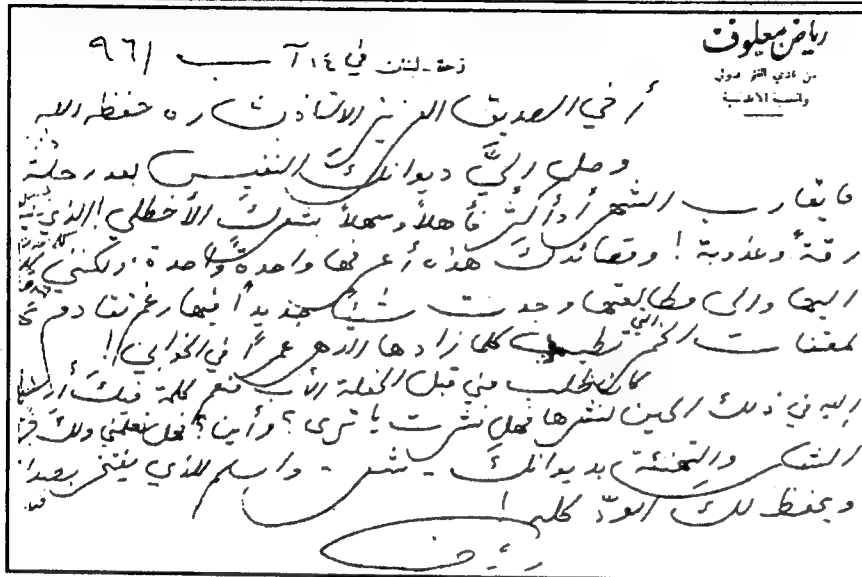 رياض معلوف
من نادي القلم الدولي
زحلة - لبنان في ١٤ آب ٩٦١
أخي الصديق العزيز الاستاذ شاره حفظه الله
وصلني اليَّ ديوانك النفيس بعد رحلة
ما يقارب الشهر أو أكثر فأهلاً وسهلاً بشعرك الأخطلي! الذي
رقة وعذوبة! وقصائدك هذه أعرفها واحدةً واحدة. ولكنني كلما
اليها والى مطالعتها وجدت شيئاً جديداً فيها رغم تقادم
لمعتقات الخمر التي تطيب كلما زادها الدهر عمراً في الخوابي!
كان طلب مني قبل الحفلة الأب كلمة فيك
اليه في ذلك الحين لنشرها فهل نشرت يا ترى؟ وأين؟ فهل تعلمني ولك
الشكر والتهنئة بديوانك - شعر - واسلم للذي يفتخر
ويحفظ لك الودّ كله!
رياض